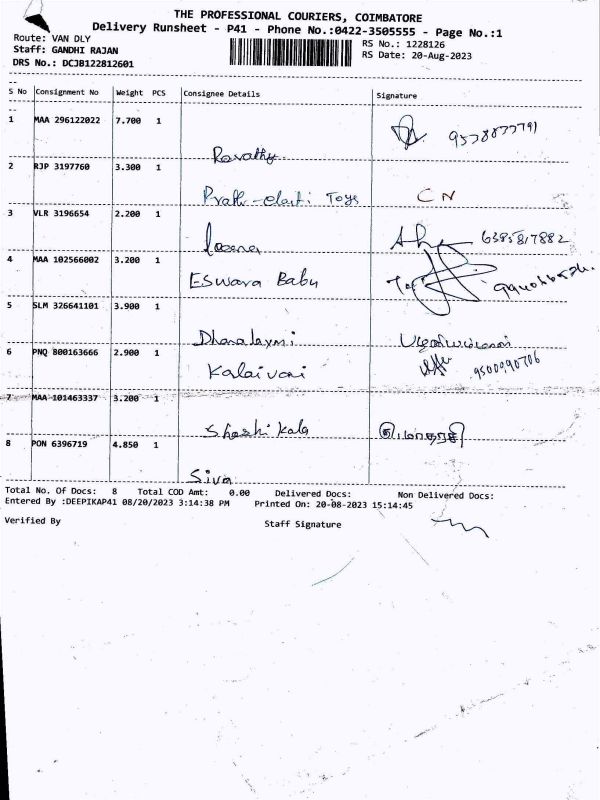 THE PROFESSIONAL COURIERS, COIMBATORE
Delivery Runsheet - P41 - Phone No.:0422-3505555 - Page No.:1
Route: VAN DLY
Staff: GANDHI RAJAN
DRS No.: DCJB122812601
RS No.: 1228126
RS Date: 20-Aug-2023
S No Consignment No Weight PCS Consignee Details Signature
1 MAA 296122022 7.700 1
Revathy
2 RJP 3197760 3.300 1
Toys CN
3 VLR 3196654 2.200 1
6385817882
4 MAA 102566002 3.200 1
Eswara Babu
5 SLM 326641101 3.900 1
Dhanalaxmi
6 PNQ 800163666 2.900 1
Kalaivani 9500090706
7 MAA 101463337 3.200 1
Shashi Kala
8 PON 6396719 4.850 1
Siva
Total No. Of Docs: 8 Total COD Amt: 0.00 Delivered Docs: Non Delivered Docs:
Entered By :DEEPIKAP41 08/20/2023 3:14:38 PM Printed On: 20-08-2023 15:14:45
Verified By Staff Signature